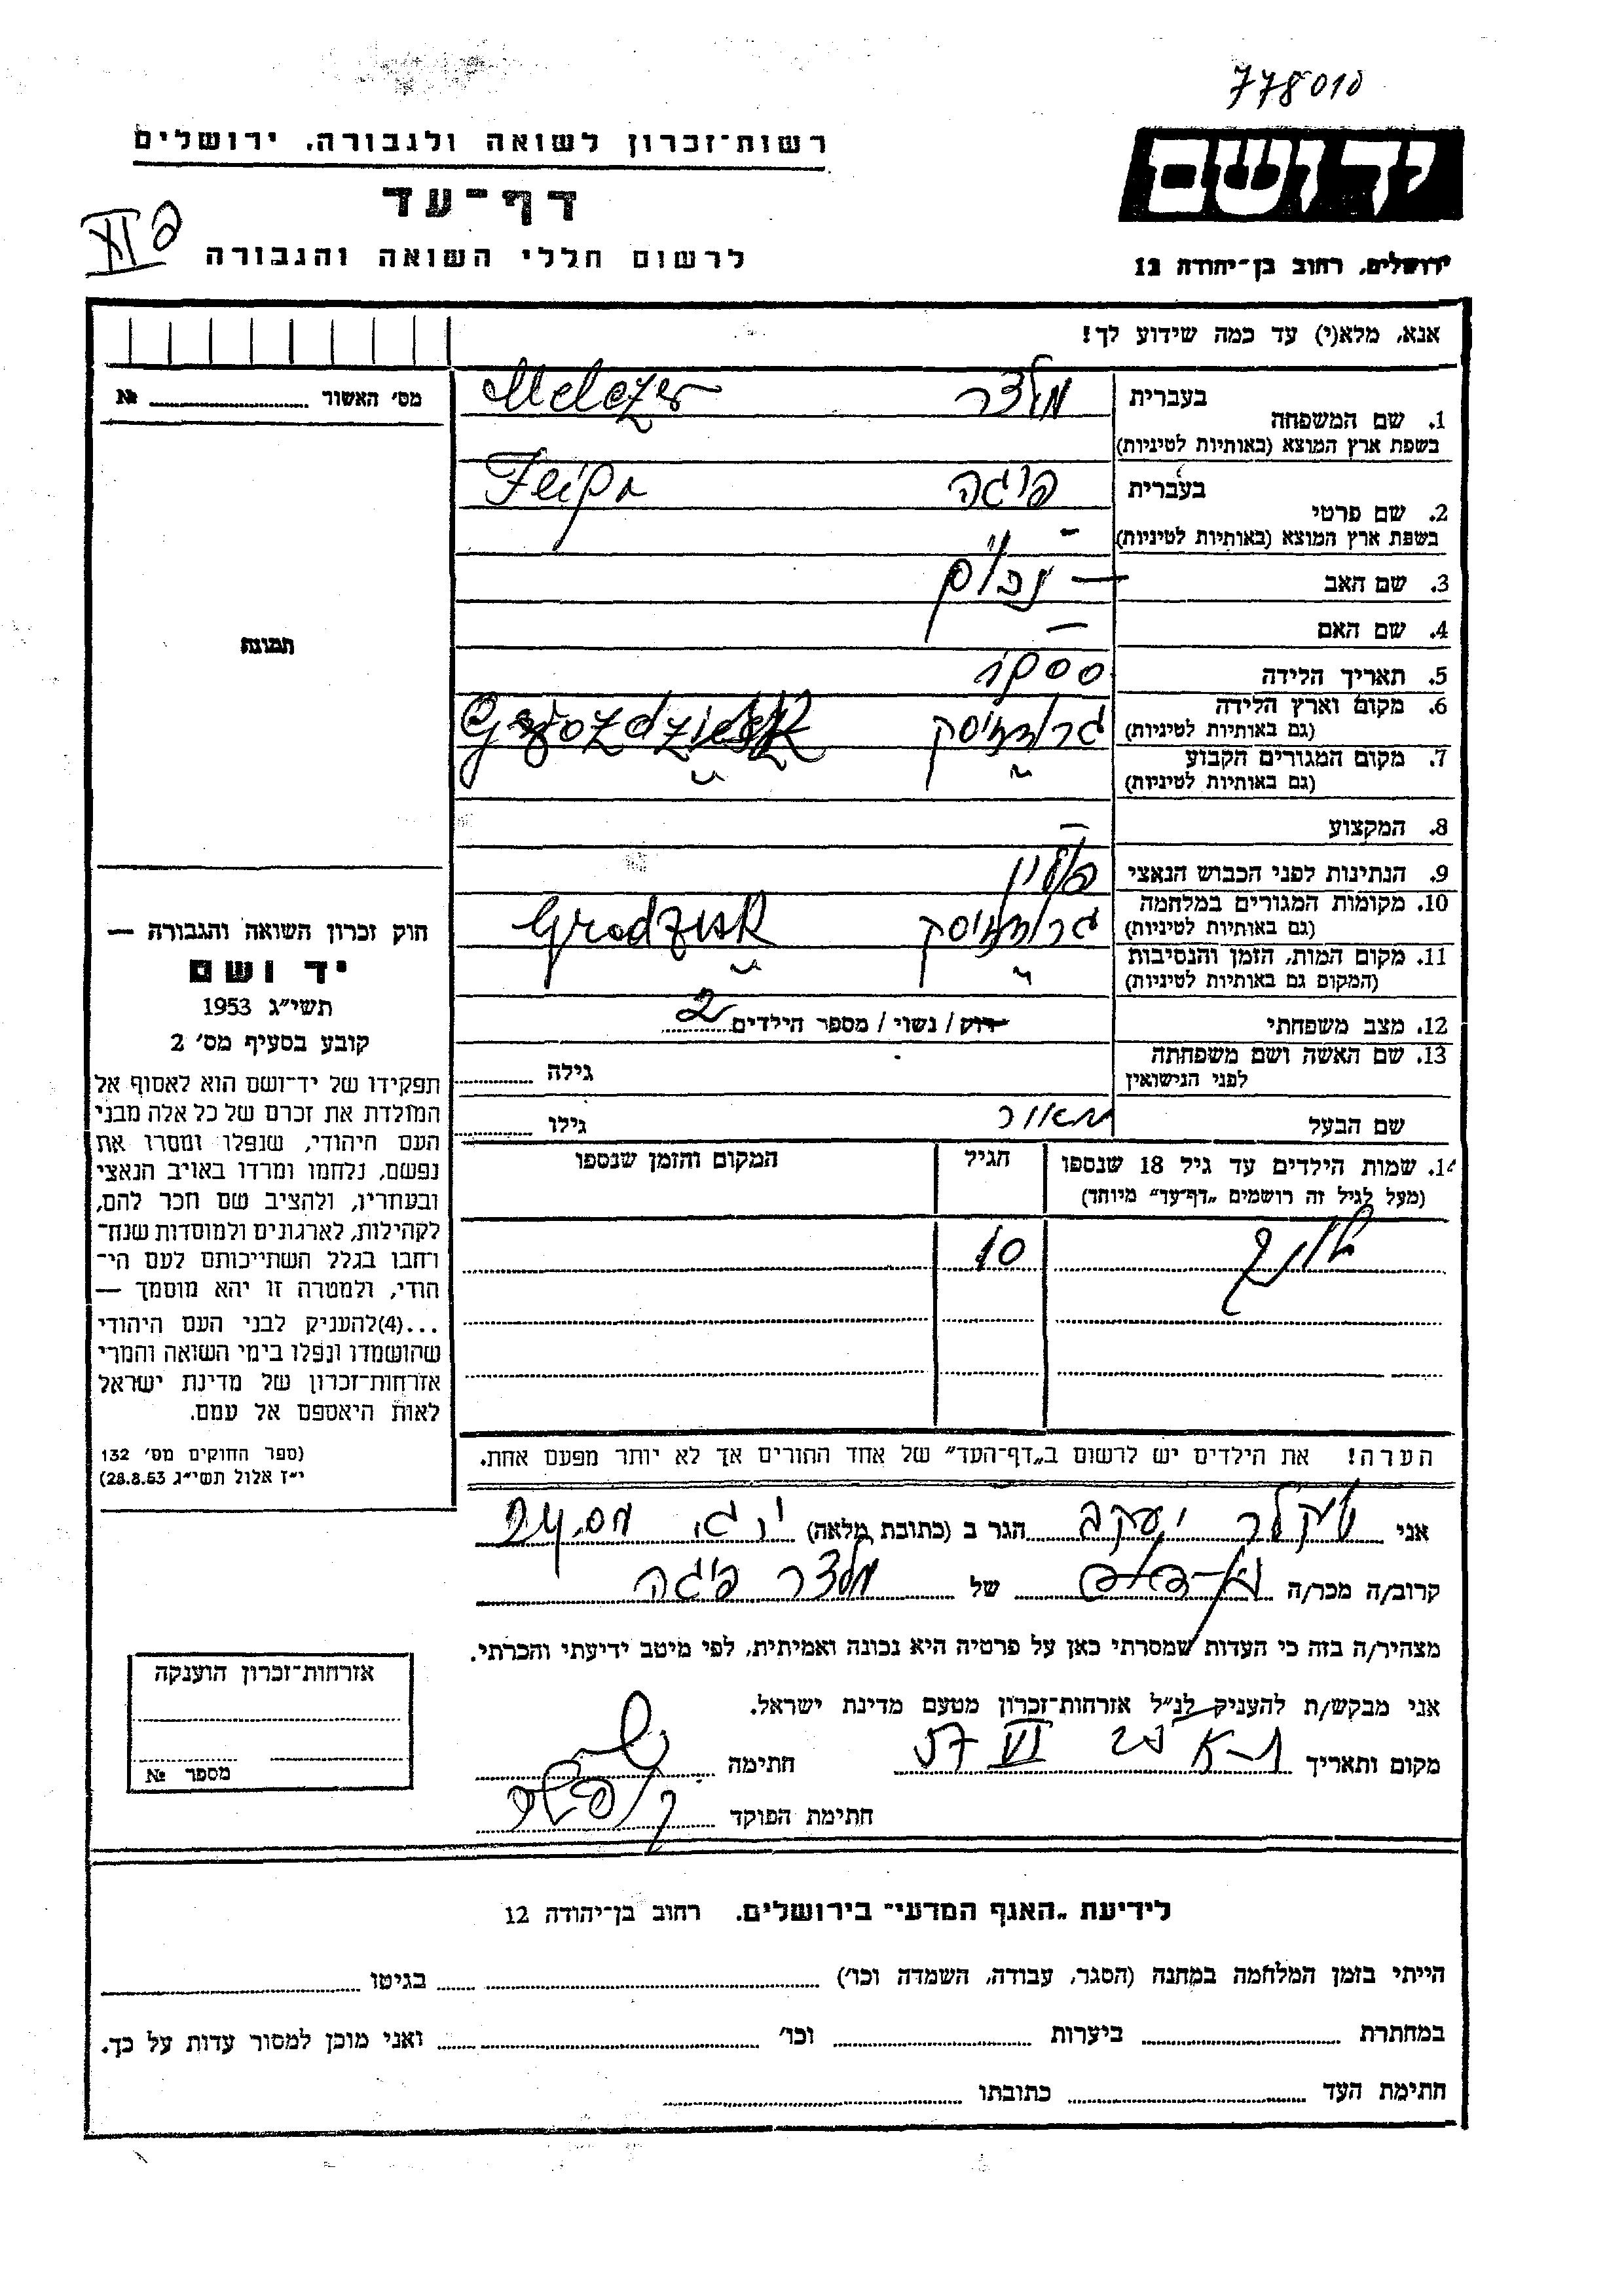 778010
רשות־זכרון לשואה ולגבורה, ירושלים
יד ושם
דף־עד
לרשום חללי השואה והגבורה
ירושלים, רחוב בן־יהודה 12
אנא, מלא(י) עד כמה שידוע לך!
מס׳ האשור №
1. שם המשפחה
בעברית מלצר Melczer
בשפת ארץ המוצא (באותיות לטיניות)
2. שם פרטי
בעברית פיגה Feiga
בשפת ארץ המוצא (באותיות לטיניות) -
3. שם האב —
4. שם האם —
5. תאריך הלידה
6. מקום וארץ הלידה
(גם באותיות לטיניות)
7. מקום המגורים הקבוע " "
(גם באותיות לטיניות)
8. המקצוע —
9. הנתינות לפני הכבוש הנאצי פולין
10. מקומות המגורים במלחמה גרודזיסק Grodzisk
(גם באותיות לטיניות)
11. מקום המות, הזמן והנסיבות " "
(המקום גם באותיות לטיניות)
12. מצב משפחתי רוק / נשוי / מספר הילדים 2
13. שם האשה ושם משפחתה
לפני הנישואין גילה
שם הבעל גילו
14. שמות הילדים עד גיל 18 שנספו הגיל המקום והזמן שנספו
(מעל לגיל זה רושמים „דף־עד״ מיוחד)
10
הערה! את הילדים יש לרשום ב„דף־העד״ של אחד ההורים אך לא יותר מפעם אחת.
תמונה
חוק זכרון השואה והגבורה —
יד ושם
תשי״ג 1953
קובע בסעיף מס׳ 2
תפקידו של יד־ושם הוא לאסוף אל
המולדת את זכרם של כל אלה מבני
העם היהודי, שנפלו ומסרו את
נפשם, נלחמו ומרדו באויב הנאצי
ובעוזריו, ולהציב שם וזכר להם,
לקהילות, לארגונים ולמוסדות שנח־
רחבו בגלל השתייכותם לעם הי־
הודי, ולמטרה זו יהא מוסמך —
...(4)להעניק לבני העם היהודי
שהושמדו ונפלו בימי השואה והמרי
אזרחות־זכרון של מדינת ישראל
לאות היאספם אל עמם.
(ספר החוקים מס׳ 132
י״ז אלול תשי״ג 28.8.53)
אני יעקב הגר ב (כתובת מלאה)
קרוב/ה מכר/ה של מלצר פיגה
מצהיר/ה בזה כי העדות שמסרתי כאן על פרטיה היא נכונה ואמיתית, לפי מיטב ידיעתי והכרתי.
אני מבקש/ת להעניק לנ״ל אזרחות־זכרון מטעם מדינת ישראל.
מקום ותאריך ת-א VI 57 חתימה
חתימת הפוקד
אזרחות־זכרון הוענקה
מספר №
לידיעת „האגף המדעי״ בירושלים. רחוב בן־יהודה 12
הייתי בזמן המלחמה במחנה (הסגר, עבודה, השמדה וכו׳) בגיטו
במחתרת ביערות וכו׳ ואני מוכן למסור עדות על כך.
חתימת העד כתובתו